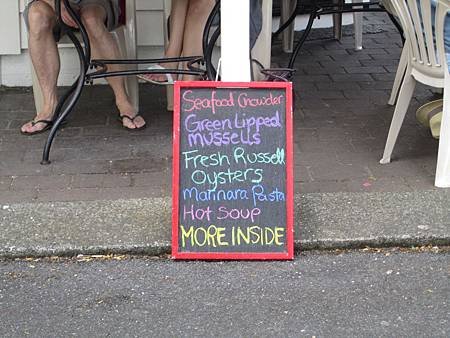 Seafood Chowder
Green Lipped
mussells
Fresh Russell
Oysters
Marinara Pasta
Hot Soup
MORE INSIDE